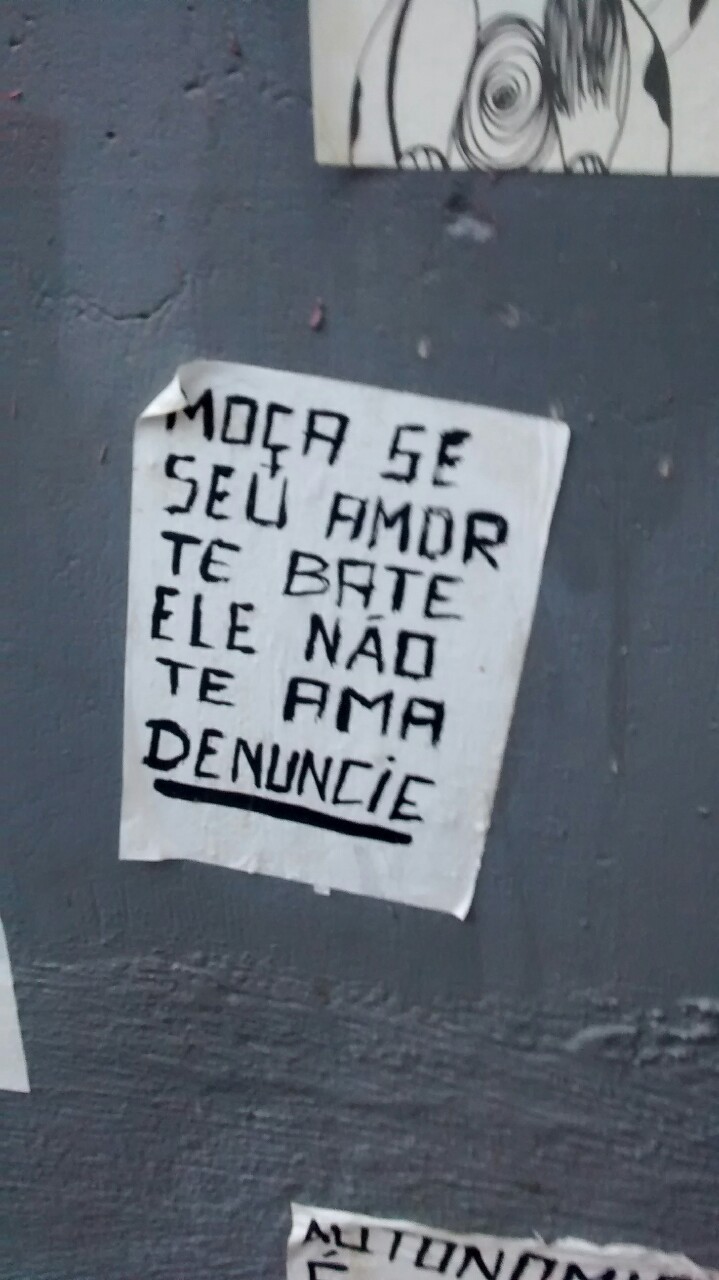 MOÇA SE
SEU AMOR
TE BATE
ELE NÃO
TE AMA
DENUNCIE
É